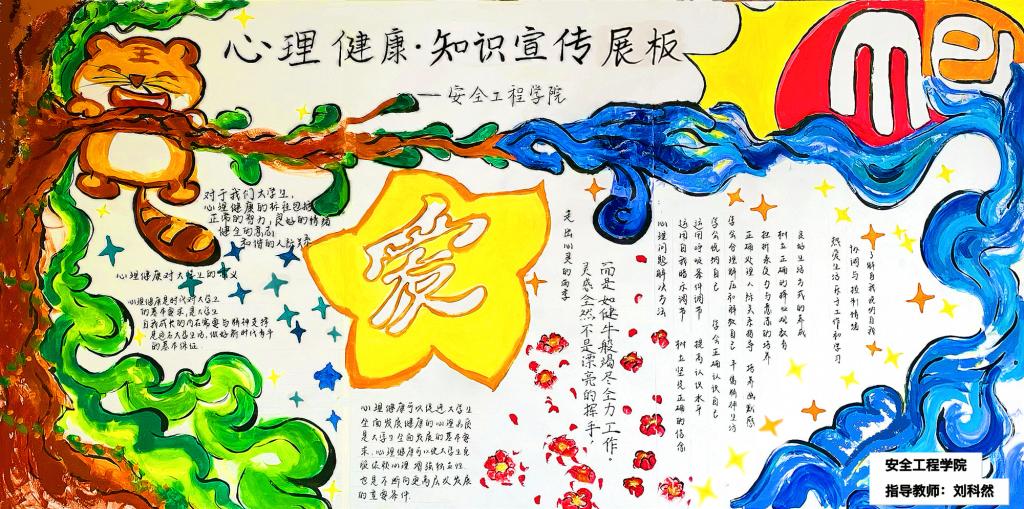 心理健康·知识宣传展板
——安全工程学院
对于我们大学生,
心理健康的标准包括
正常的智力,良好的情绪
健全的意志,
和谐的人际关系
心理健康对大学生的意义
心理健康是时代对大学生
的基本要求,是大学生
自我成长的内在需要与精神支撑
是适应大学生活,做好新时代青年
的基本保证
爱
心理健康可以促进大学生
全面发展健康的心理品质
是大学生全面发展的基本要
求,心理健康可以使大学生克
服依赖心理增强独立性
也是不断向更高层次发展
的重要条件
走出心灵的雨季
灵感全然不是漂亮的挥手,
而是如健牛般竭尽全力工作。
心理问题解决方法
运用自我暗示调节
运用呼吸等件调节
学会悦纳自己
学会正确认识自己
提高认识水平
树立坚定正确的信念
学会合理解压和解救自己
丰富精神生活
正确处理人际关系指导
培养幽默感
挫折承受力与意志的培养
树立正确的择业观教育
良好生活方式的养成
热爱生活乐于工作和学习
协调与控制情绪
了解自我悦纳自我
安全工程学院
指导教师:刘科然